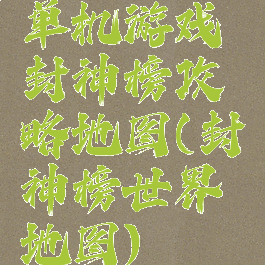 单机游戏
封神榜攻
略地图(封
神榜世界
地图)